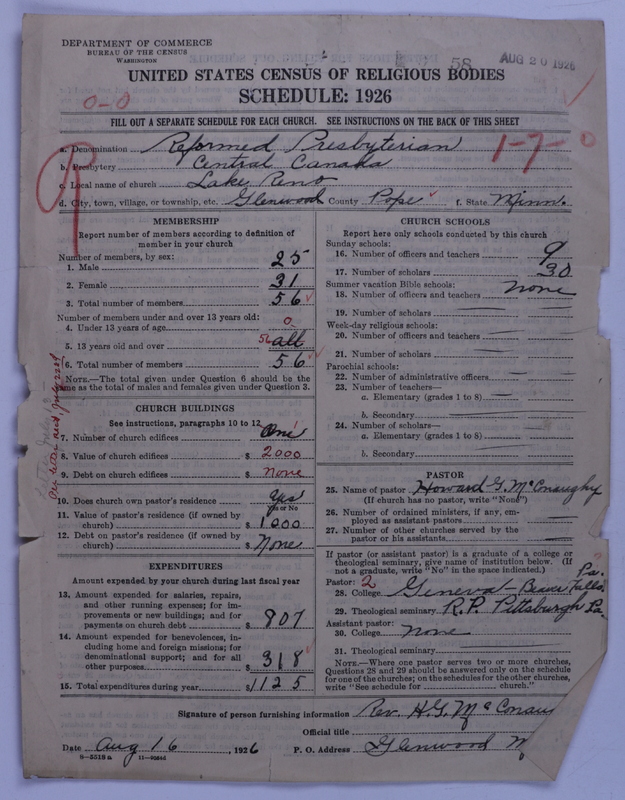 DEPARTMENT OF COMMERCE
BUREAU OF THE CENSUS
WASHINGTON
58
AUG 20 1926
UNITED STATES CENSUS OF RELIGIOUS BODIES
SCHEDULE: 1926
0-0
FILL OUT A SEPARATE SCHEDULE FOR EACH CHURCH. SEE INSTRUCTIONS ON THE BACK OF THIS SHEET
1-7-0
a. Denomination Reformed Presbyterian
b. Presbytery Central Canada
c. Local name of church Lake Reno
d. City, town, village, or township, etc. Glenwood County Pope f. State Minn.
MEMBERSHIP
Report number of members according to definition of member in your church
Number of members, by sex:
1. Male 25
2. Female 31
3. Total number of members 56
Number of members under and over 13 years old:
4. Under 13 years of age 0
5. 13 years old and over 56 all
6. Total number of members 56
NOTE.—The total given under Question 6 should be the
same as the total of males and females given under Question 3.
CHURCH BUILDINGS
See instructions, paragraphs 10 to 12
7. Number of church edifices One 1
8. Value of church edifices $ 2000
9. Debt on church edifices $ None
10. Does church own pastor's residence Yes
Yes or No
11. Value of pastor's residence (if owned by
church) $ 1000
12. Debt on pastor's residence (if owned by
church) $ None
EXPENDITURES
Amount expended by your church during last fiscal year
13. Amount expended for salaries, repairs,
and other running expenses; for im-
provements or new buildings; and for
payments on church debt $ 807
14. Amount expended for benevolences, in-
cluding home and foreign missions; for
denominational support; and for all
other purposes $ 318
15. Total expenditures during year $ 1125
CHURCH SCHOOLS
Report here only schools conducted by this church
Sunday schools:
16. Number of officers and teachers 9
17. Number of scholars 30
Summer vacation Bible schools:
18. Number of officers and teachers None
19. Number of scholars
Week-day religious schools:
20. Number of officers and teachers
21. Number of scholars
Parochial schools:
22. Number of administrative officers
23. Number of teachers—
a. Elementary (grades 1 to 8)
b. Secondary
24. Number of scholars—
a. Elementary (grades 1 to 8)
b. Secondary
PASTOR
25. Name of pastor Howard G. McConaughy
(If church has no pastor, write "None")
26. Number of ordained ministers, if any, em-
ployed as assistant pastors
27. Number of other churches served by the
pastor or his assistants
If pastor (or assistant pastor) is a graduate of a college or
theological seminary, give name of institution below. (If
not a graduate, write "No" in the space indicated.)
Pastor: 2
28. College Geneva - Beaver Falls. Pa.
29. Theological seminary R.P. Pittsburgh Pa.
Assistant pastor:
30. College None
31. Theological seminary
NOTE.—Where one pastor serves two or more churches,
Questions 28 and 29 should be answered only on the schedule
for one of the churches; on the schedules for the other churches,
write "See schedule for church."
Signature of person furnishing information Rev. H.G. McConau
Official title
Date Aug 16, 1926 P. O. Address Glenwood M
8-5518a